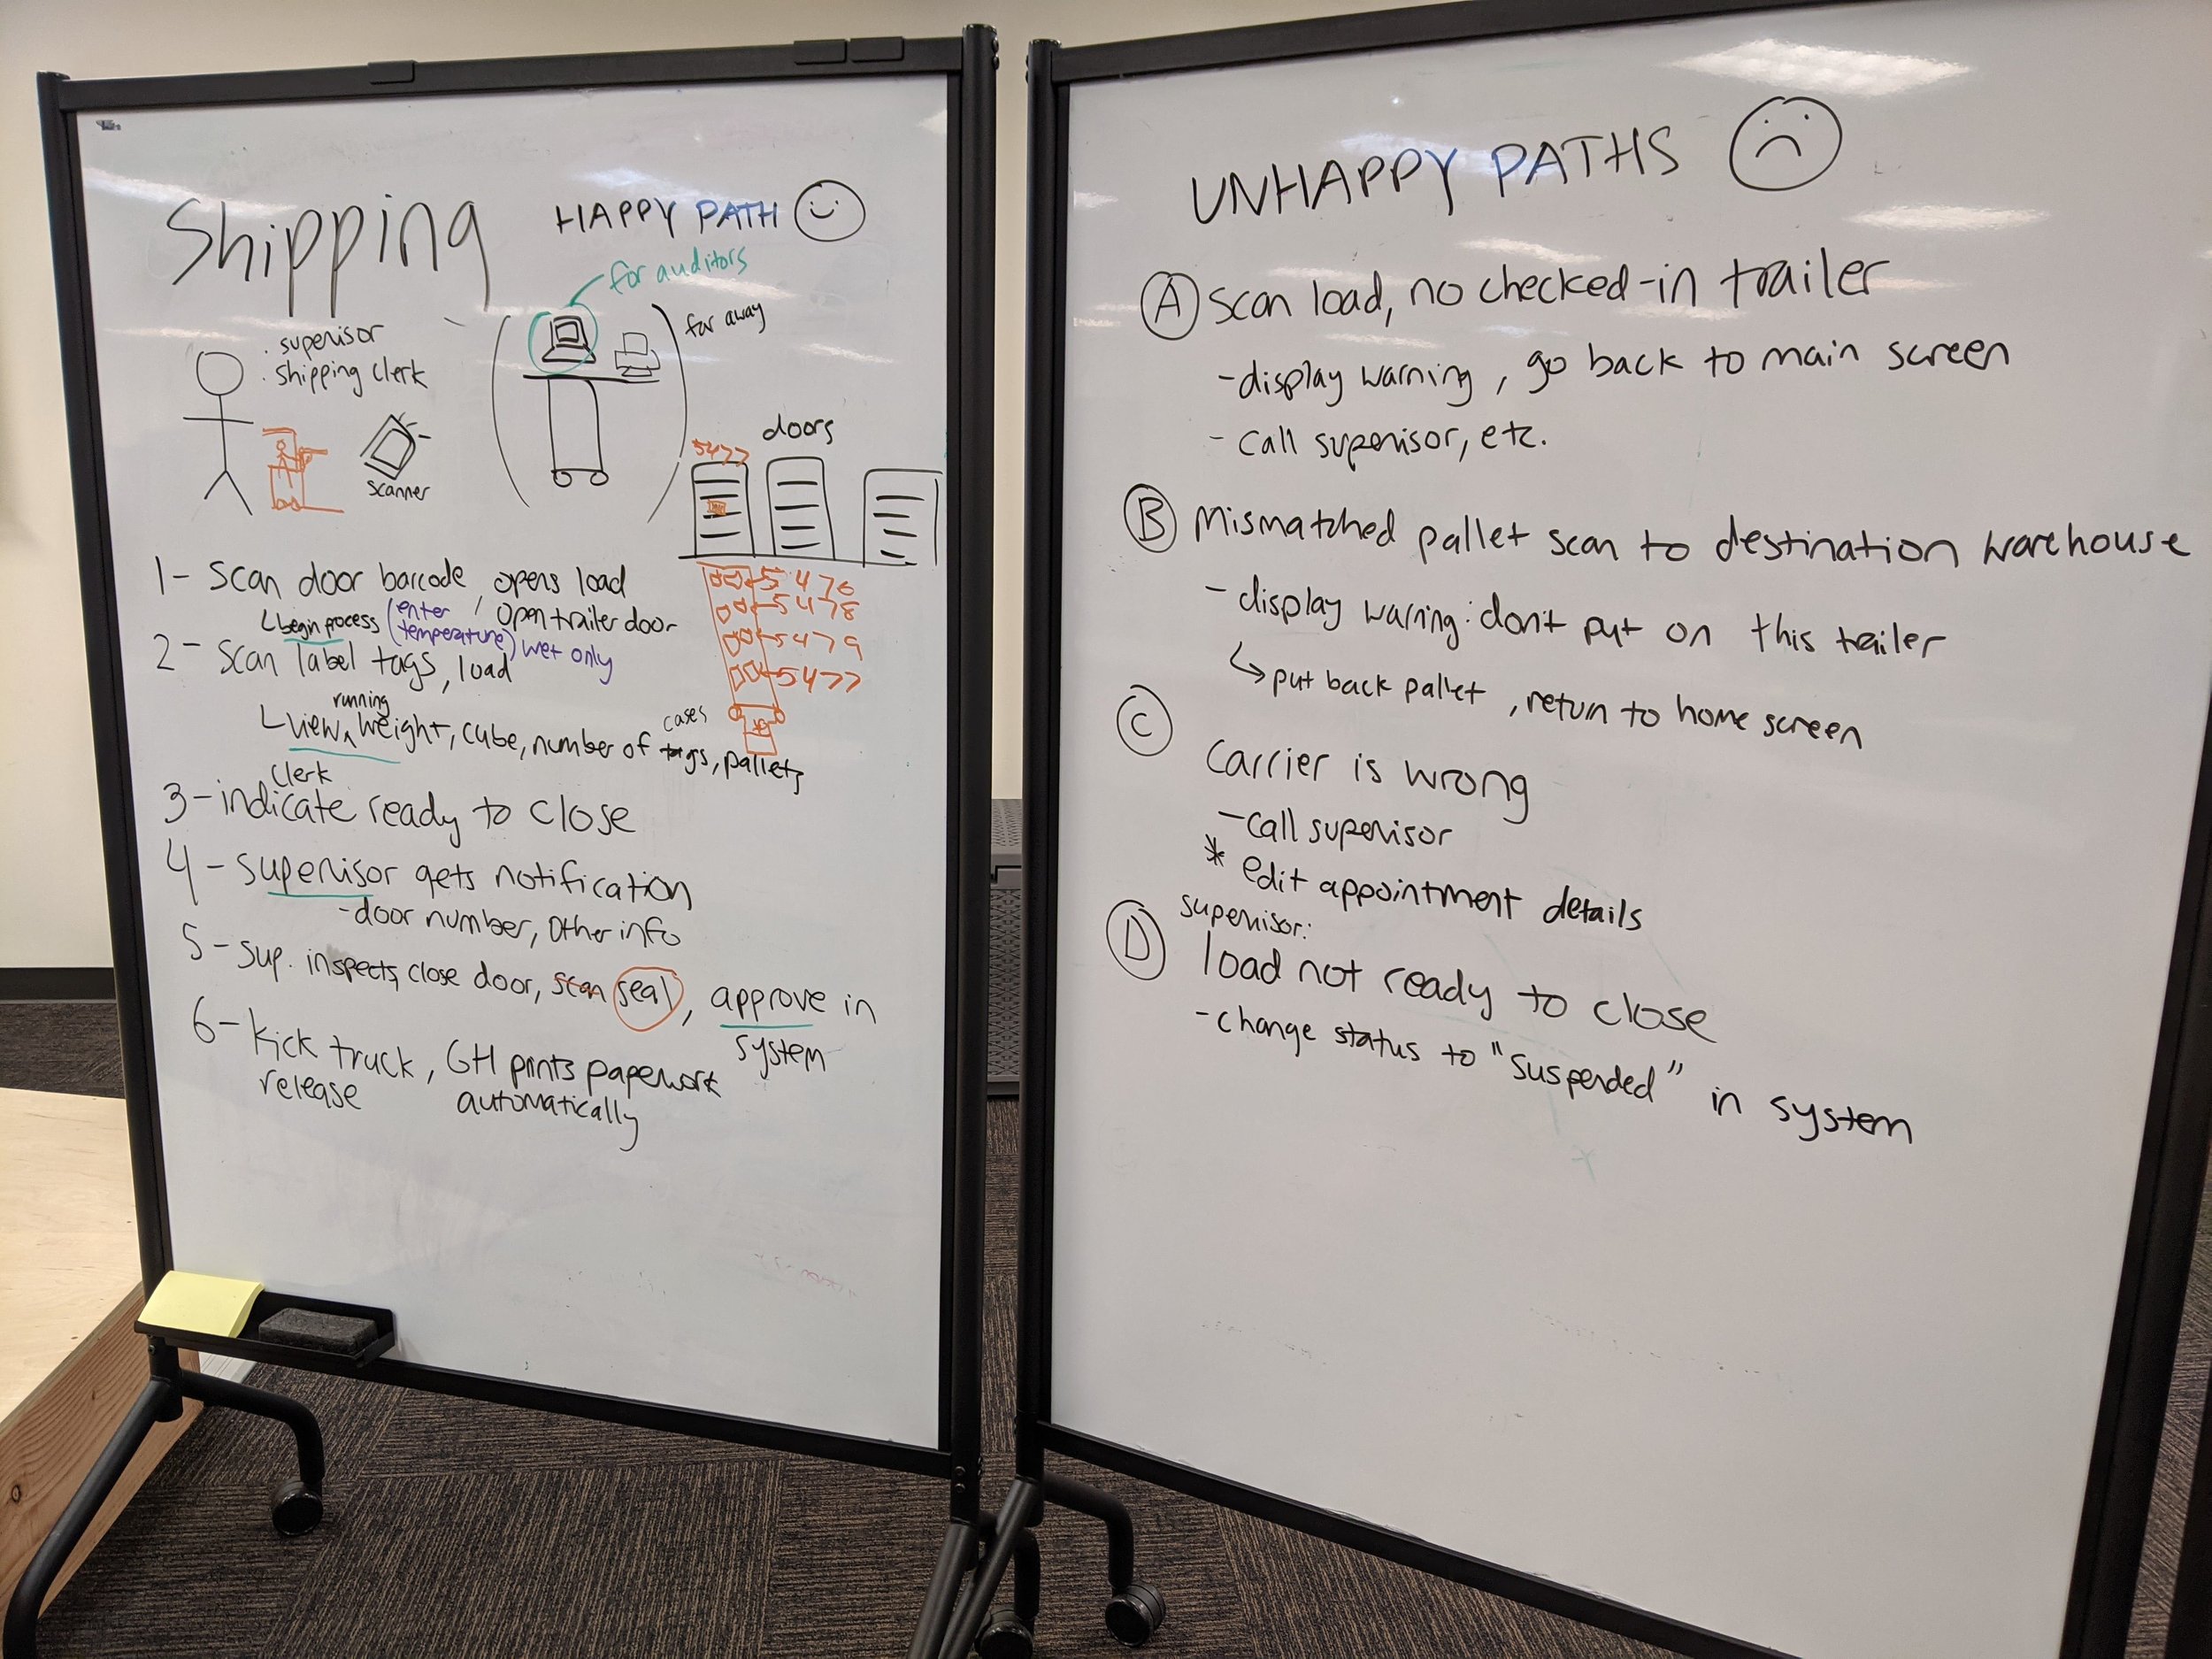 Shipping
HAPPY PATH
for auditors
far away
. supervisor
. shipping clerk
scanner
doors
5477
1- scan door barcode, opens load
begin process (enter temperature) wet only / open trailer door
5476
5478
5479
5477
2- scan label tags, load
running
view ^ weight, cube, number of tags, pallets
cases
clerk
3- indicate ready to close
4- supervisor gets notification
- door number, other info
5- sup. inspects, close door, scan seal, approve in
system
6- kick truck, GH prints paperwork
release automatically
UNHAPPY PATHS
A scan load, no checked-in trailer
- display warning, go back to main screen
- call supervisor, etc.
B Mismatched pallet scan to destination warehouse
- display warning: don't put on this trailer
put back pallet, return to home screen
C
Carrier is wrong
- call supervisor
* edit appointment details
supervisor:
D load not ready to close
- change status to "suspended" in system